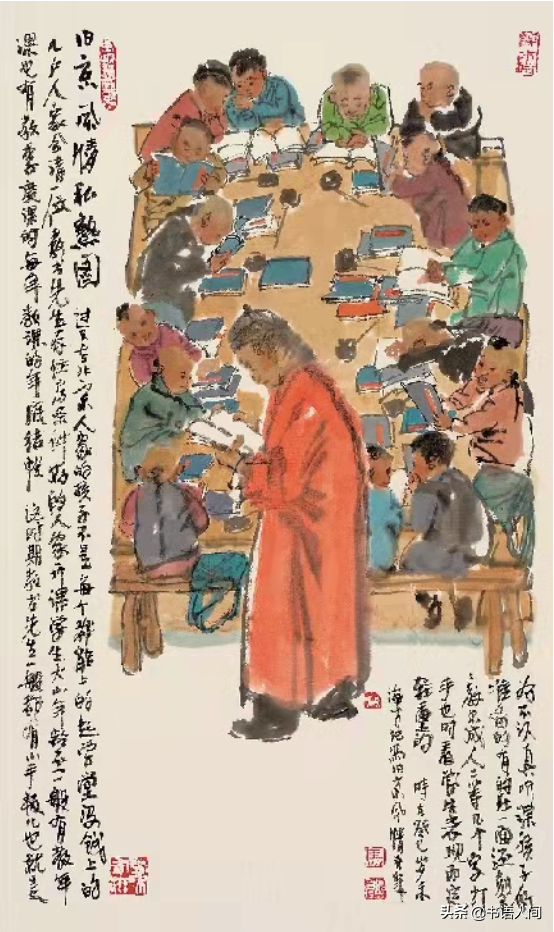 旧京风情私塾图 过去老北京人家的孩子不是每个都能上的起学堂没钱上的
几户人家合请一位教书先生在条件好的人家开课学生大小年龄不一般有教年
课也有教季度课的每年教课的年底结帐 这时期教书先生一般都有小手板儿也就是
为不认真听课孩子们
准备的有的在上面还刻
不成人三等几个字打
手也时看学生表现而定
轻重的 时在癸巳岁末
海方记写旧京风情
头条 @书语人间